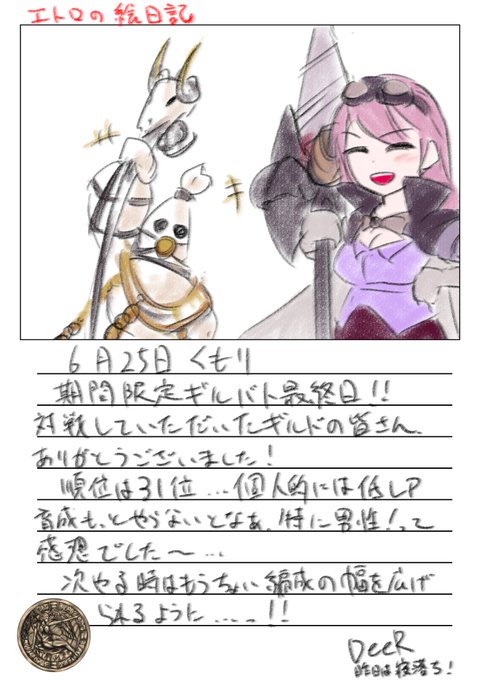 エトロの絵日記
6月25日 くもり
期間限定ギルバト最終日!!
対戦していただいたギルドの皆さん、
ありがとうございました!
順位は31位...個人的には低LP
育成もっとやらないとなぁ、特に男性!って
感想でした〜...
次やる時はもうちょい編成の幅を広げ
られるように....!!
DeeR
昨日は寝落ち!